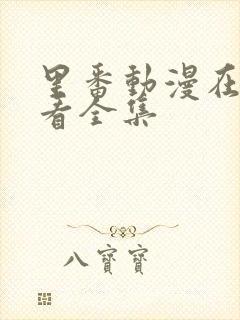 里番動漫在
看全集
八寶寶